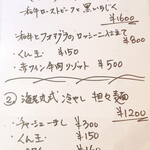 和牛ローストビーフと黒いちじく
¥1600
和牛とフォアグラのロッシーニ仕立て
¥800
くん玉 ¥150
赤ワイン牛肉リゾット ¥500
② 海老式 冷やし 担々麺
¥1200
チャーシューましし ¥300
くん玉 ¥150